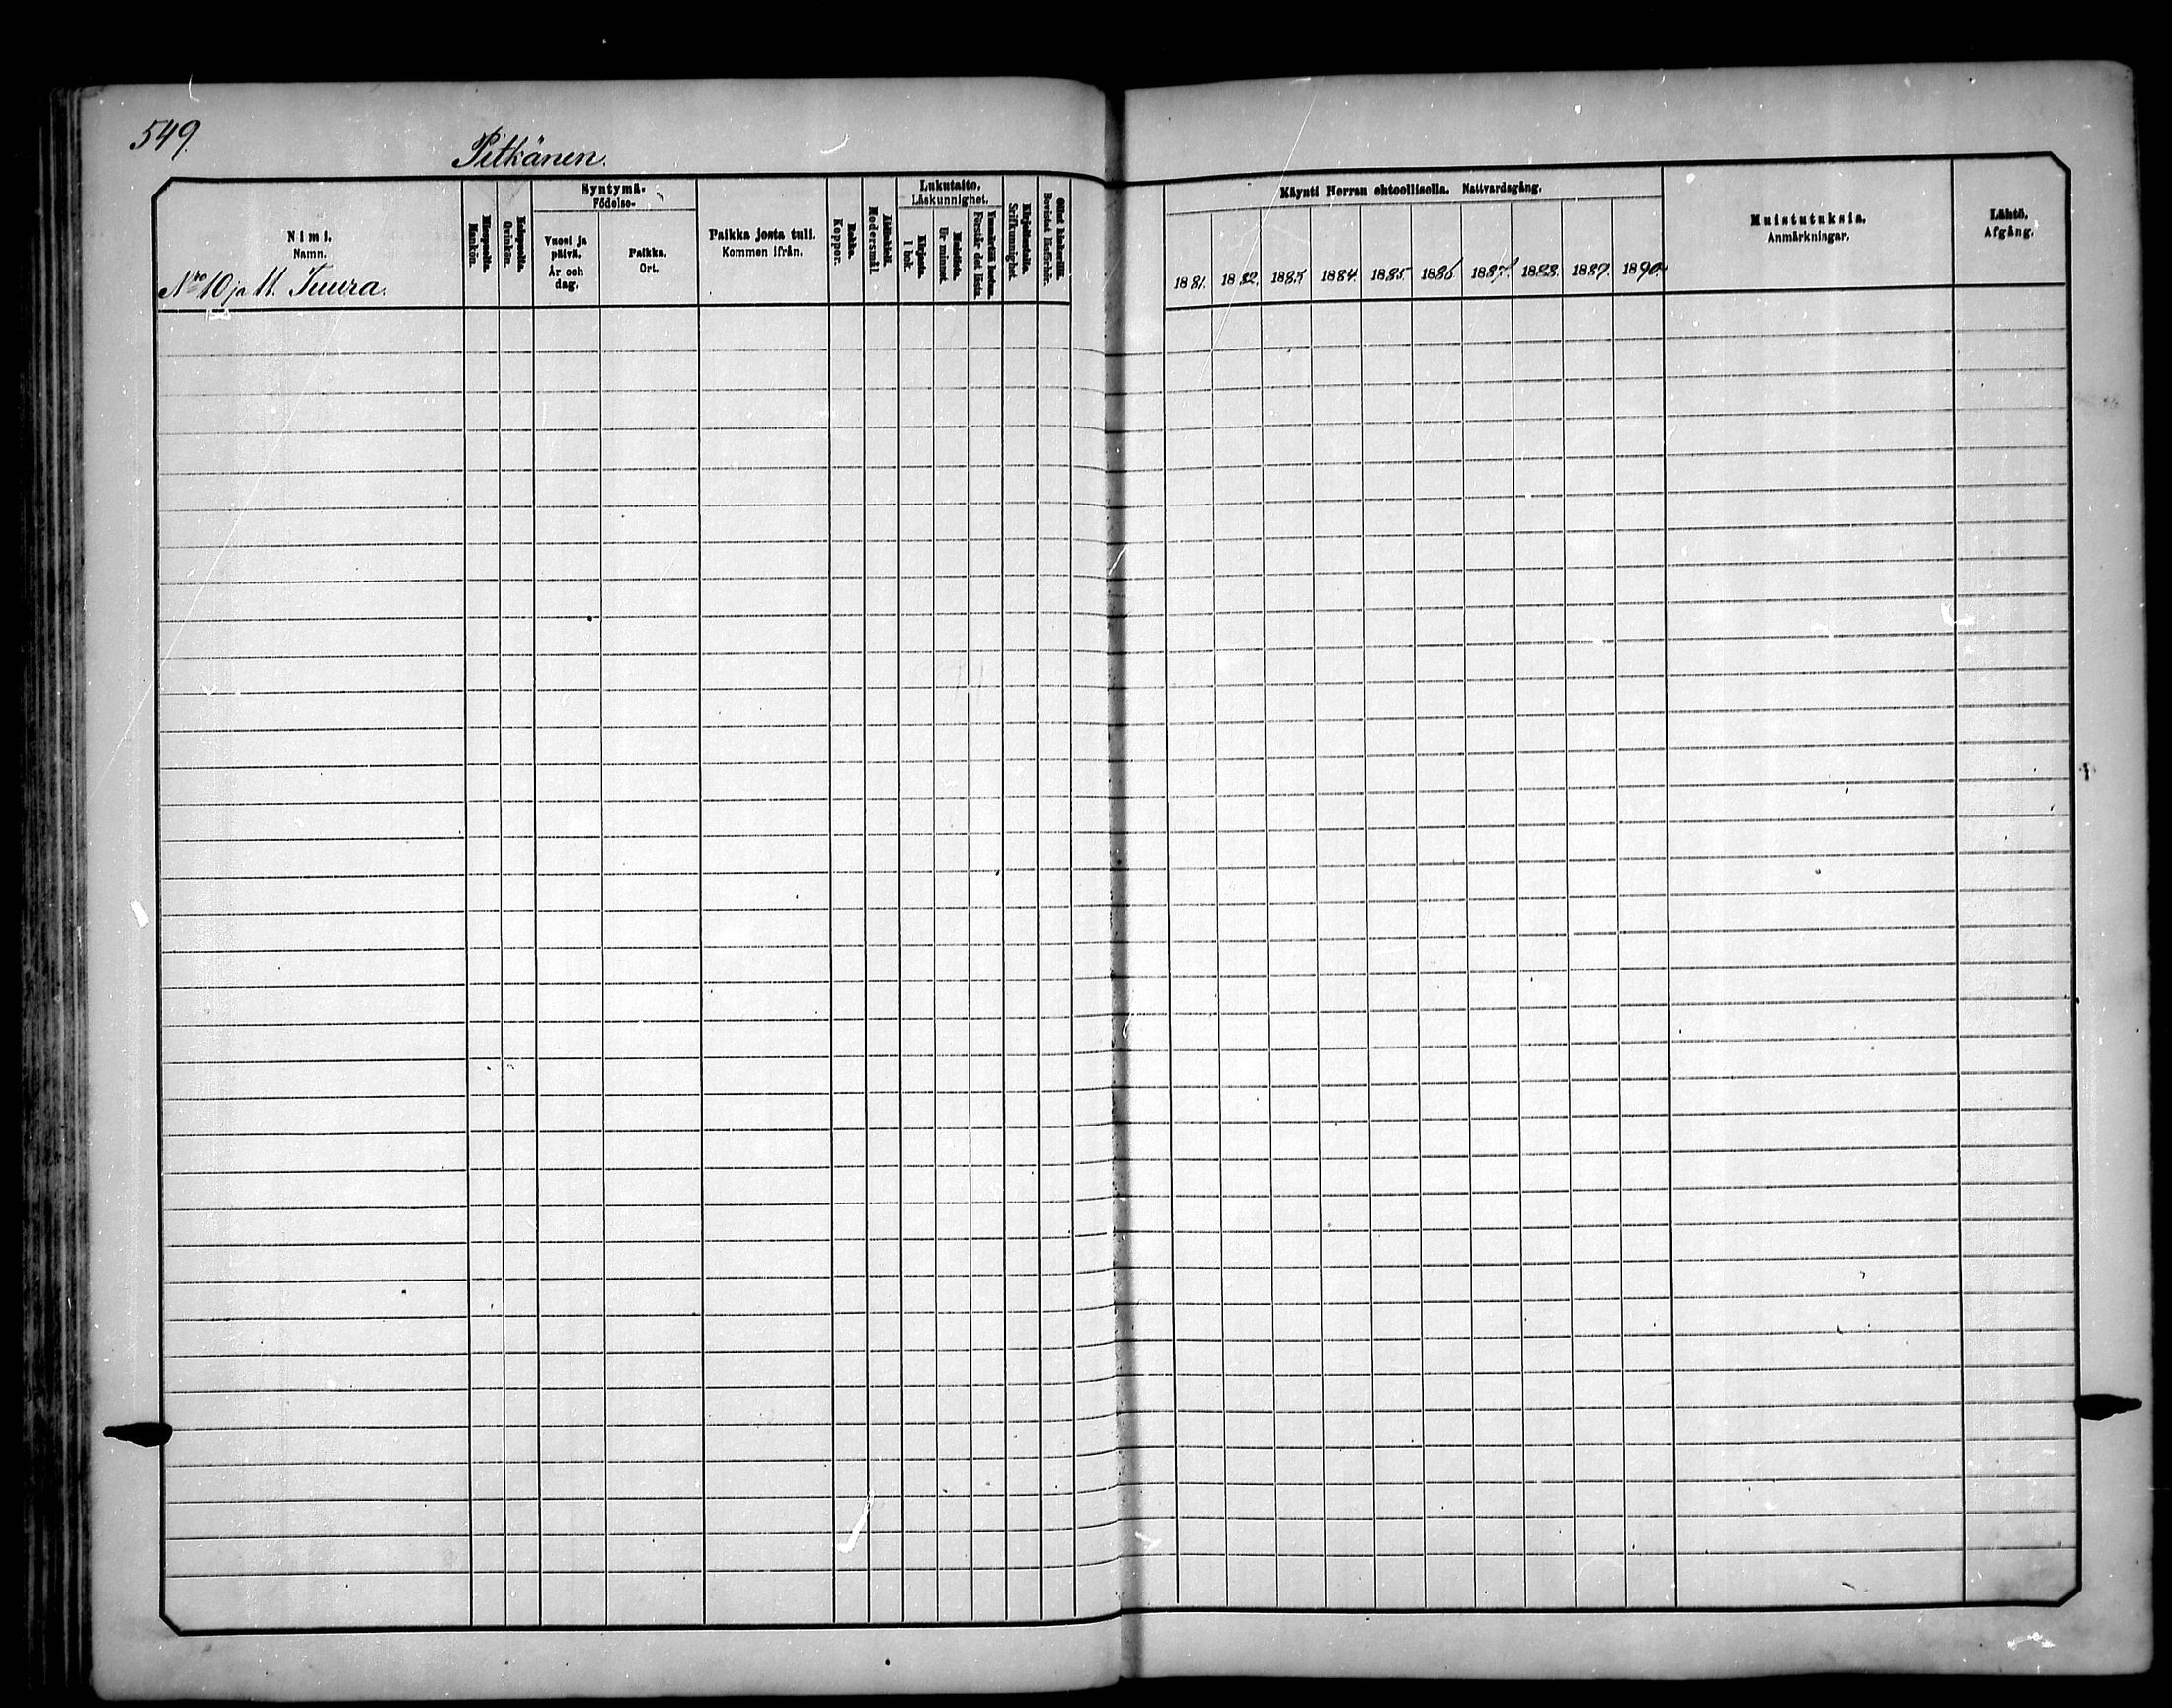 549.
Pitkänen.
Nimi.
Namn.
Nro 10 ja 11. Tuura.
Miespuolia.
Mankön.
Vaimopuolia.
Qvinkön.
Syntymä-
Födelse-
Vuosi ja
päivä.
År och
dag.
Paikka.
Ort.
Paikka josta tuli.
Kommen ifrån.
Rokko.
Koppor.
Äidinkieli.
Modersmål.
Lukutaito.
Läskunnighet.
Kirjasta.
I bok.
Muistista.
Ur minnet.
Ymmärtää luetun.
Förstår det lästa.
Kirjoitustaito.
Skrifkunnighet.
Bevistat läsförhör.
Käynti Herran ehtoollisella. Nattvardsgång.
1881. 1882. 1883. 1884. 1885. 1886. 1887. 1888. 1889. 1890.
Muistutuksia.
Anmärkningar.
Lähtö.
Afgång.